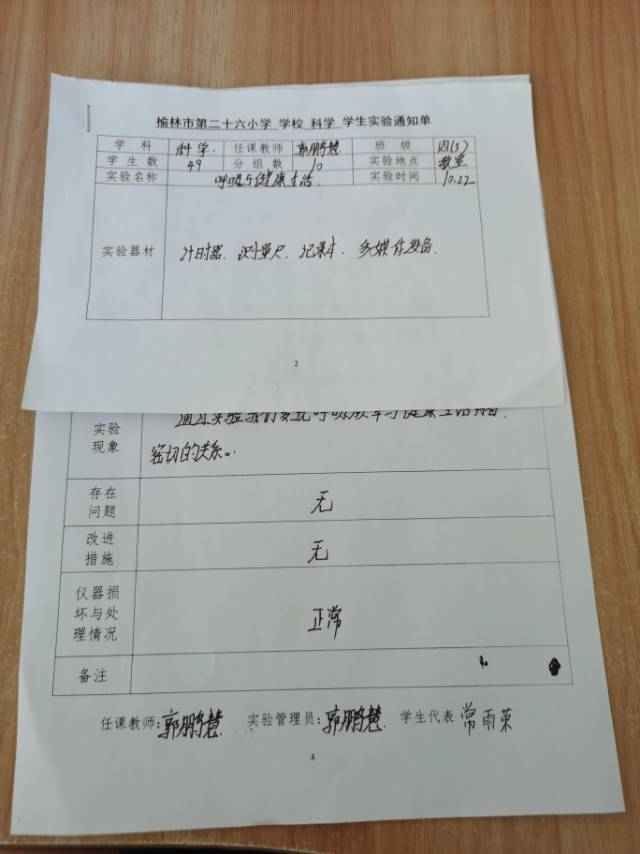 榆林市第二十六小学 学校 科学 学生实验通知单
学 科 科学 任课教师 郭鹏慧 班 级 四(5)
学 生 数 49 分 组 数 10 实验地点 教室
实验名称 呼吸与健康生活 实验时间 10.22
实验器材 计时器、测量尺、记录本、多媒体设备.
2
实验
现象
通过实验我们发现呼吸
健康生活有着
密切的关系。
存在
问题 无
改进
措施 无
仪器损
坏与处
理情况 正常
备注
任课教师:郭鹏慧 实验管理员:郭鹏慧 学生代表 常雨荣
4